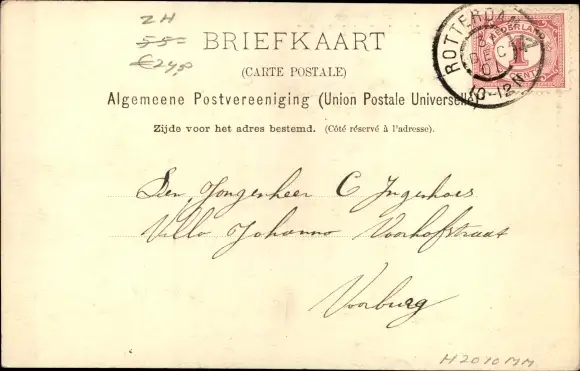 ZH
55=
€24,8
BRIEFKAART
(CARTE POSTALE)
Algemeene Postvereeniging (Union Postale Universelle)
Zijde voor het adres bestemd. (Côté réservé à l'adresse).
ROTTERDAM
8 DEC 01
10-12 N
NEDERLAND
1
CENT
Den Jongenheer C Ingenhoes
Villa Johanna Voorhofstraat
Voorburg
H2010MM